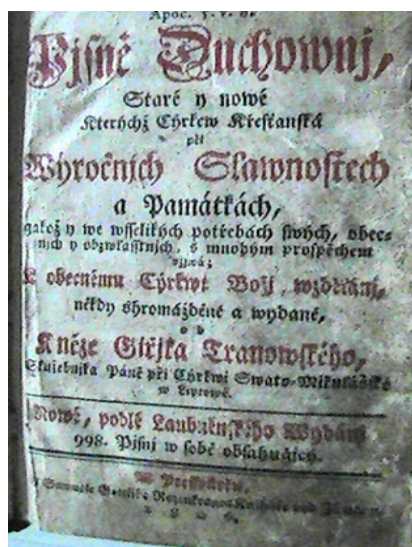 Apoc. 5. v.
Pjsně Duchownj,
Staré y nowé
Kterýchž Cýrkew Křesťanská
při
Wýročnjch Slawnostech
a Památkách,
gakož y we wsselikých potřebách swých, obec=
njch y obzwlásstnjch, s mnohým prospěchem
vžjwá;
K obecnému Cýrkwe Božj wzdělánj,
někdy shromážděné a wydané,
od
Kněze Giřjka Tranowského,
Služebnjka Páně při Cýrkwi Swato-Mikulášské
w Liptowě.
Nowě, podlé Laubánského Wydánj
998. Pjsnj w sobě obsahugjcý.
W Presspurku,
Samuele